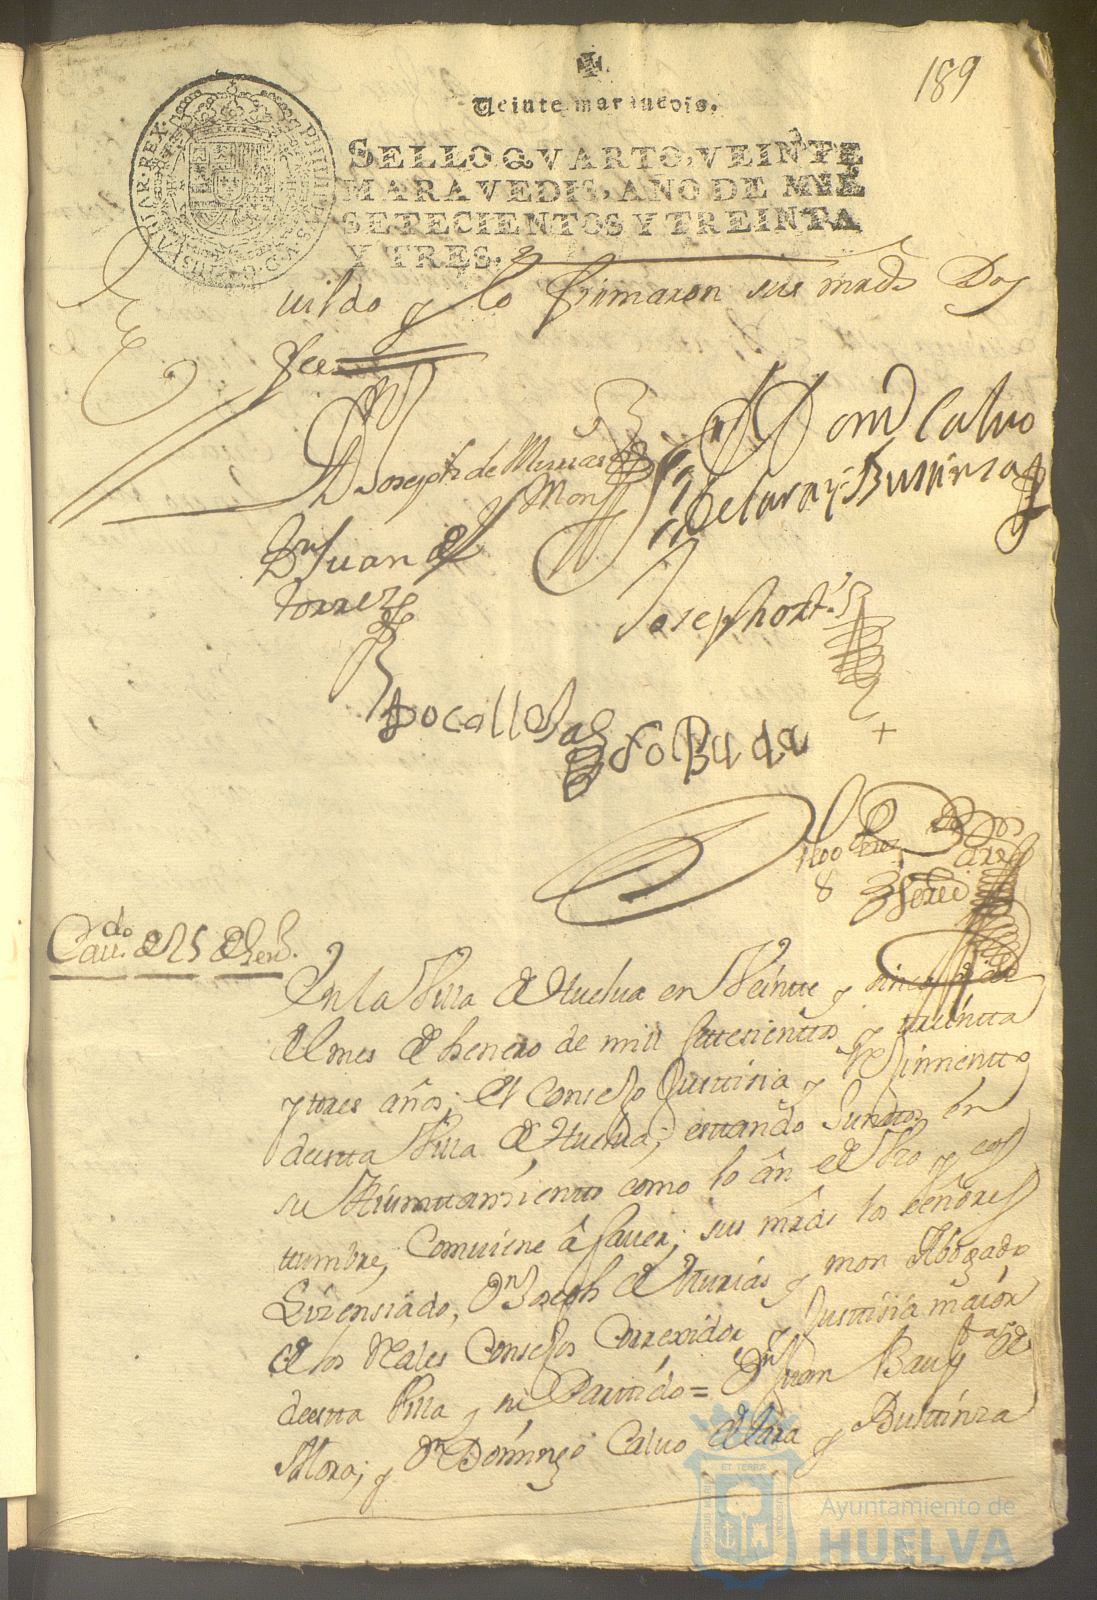 189
Veinte marauedis.
SELLO QVARTO, VEINTE
MARAVEDIS, AÑO DE MIL
SETECIENTOS Y TREINTA
Y TRES.
PHILIPPVS V D G HISPANIAR REX
uildo y lo firmaron sus mrds Doy
fee
Dn Joseph de Murias
y Mon
Domº Calvo
de Lara y Bustinza
Dn Juan de
Torres
Joseph orts
Caudo de 25 de Hen.
En la Villa de Huelua en Veinte y sinco dias
del mes de henero de mill settesienttos y treintta
y tres años; el Consejo Justtisia y Reximientto
de estta Villa de Huelua; esttando Junttos en
su Aiunttamientto como lo an de Uso y cos
tumbre, Comuiene â sauer; sus mrds los señores
Lizensiado, Dn Joseph de Murias y mon Abogado
de los Reales Consejos Correxidor y Justtisia maior
de estta Villa y su Parttido = Dn Juan Bautta de
Mora; y Dn Domingo Caluo de lara y Busttinza
ET TERRÆ
Ayuntamiento de
HUELVA